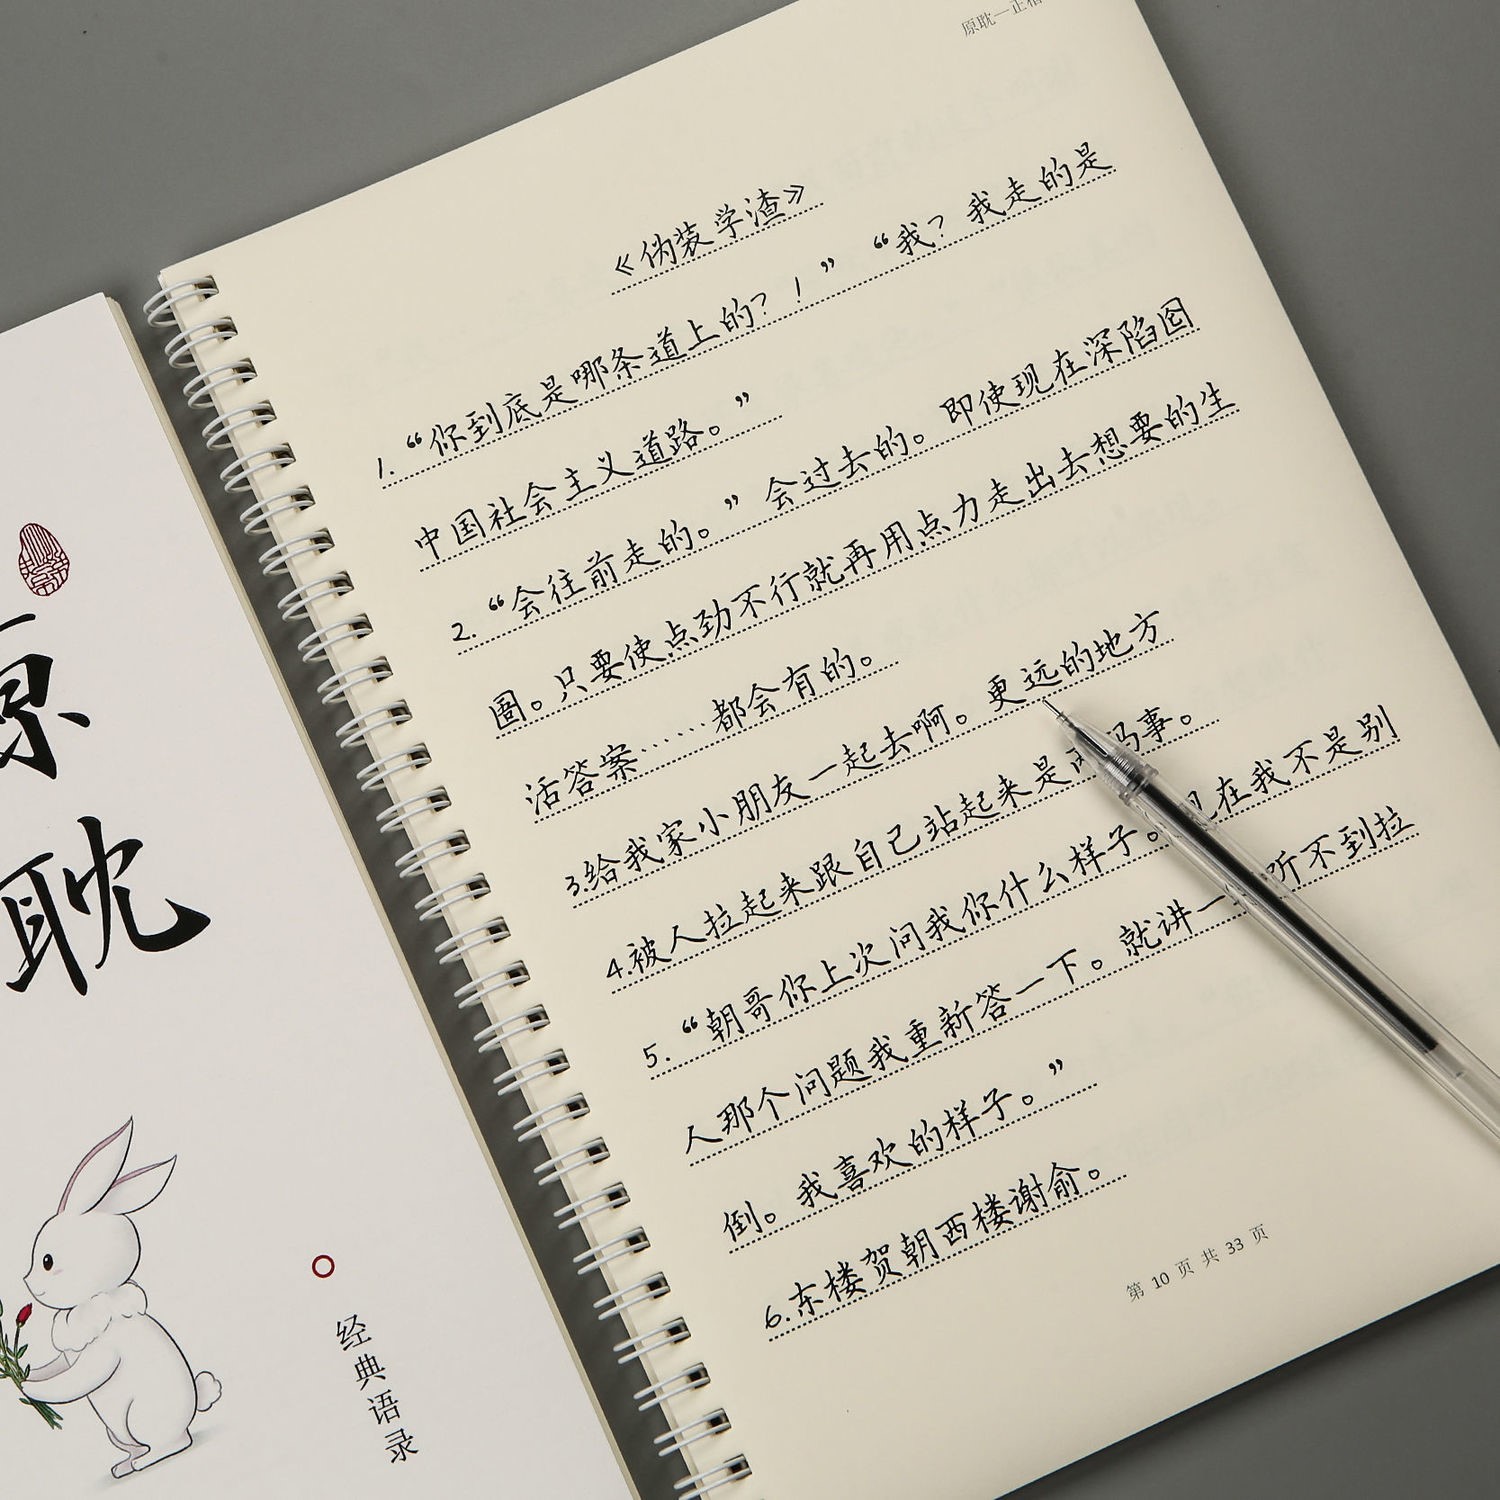 原耽一正楷
《伪装学渣》
1.“你到底是哪条道上的？！”“我？我走的是
中国社会主义道路。”
2.“会往前走的。”会过去的。即使现在深陷囹
圄。只要使点劲不行就再用点力走出去想要的生
活答案……都会有的。
3.给我家小朋友一起去啊。更远的地方
4.被人拉起来跟自己站起来是两码事。
5.“朝哥你上次问我你什么样子。现在我不是别
人那个问题我重新答一下。就讲一 听不到拉
倒。我喜欢的样子。”
6.东楼贺朝西楼谢俞。
第 10 页 共 33 页
原耽
经典语录